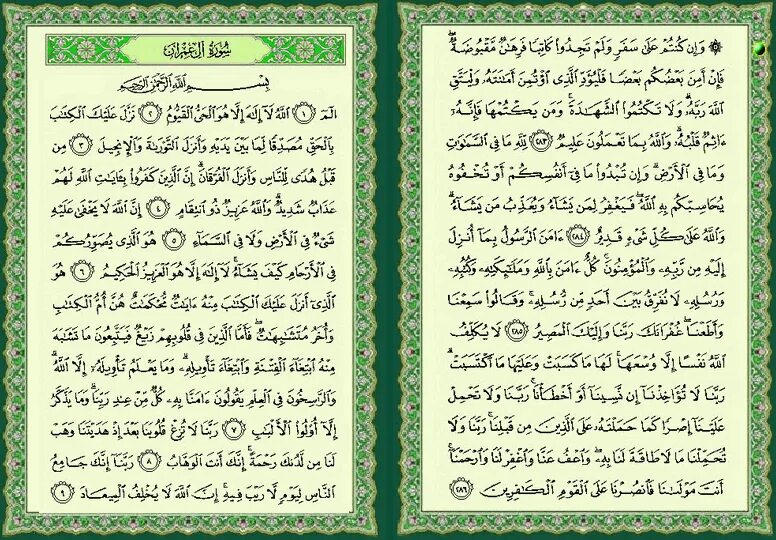 ۞ وَإِن كُنتُمْ عَلَىٰ سَفَرٍ وَلَمْ تَجِدُوا۟ كَاتِبًا فَرِهَـٰنٌ مَّقْبُوضَةٌ ۖ
فَإِنْ أَمِنَ بَعْضُكُم بَعْضًا فَلْيُؤَدِّ ٱلَّذِى ٱؤْتُمِنَ أَمَـٰنَتَهُۥ وَلْيَتَّقِ
ٱللَّهَ رَبَّهُۥ ۗ وَلَا تَكْتُمُوا۟ ٱلشَّهَـٰدَةَ ۚ وَمَن يَكْتُمْهَا فَإِنَّهُۥٓ
ءَاثِمٌ قَلْبُهُۥ ۗ وَٱللَّهُ بِمَا تَعْمَلُونَ عَلِيمٌ ٢٨٣ لِّلَّهِ مَا فِى ٱلسَّمَـٰوَٰتِ
وَمَا فِى ٱلْأَرْضِ ۗ وَإِن تُبْدُوا۟ مَا فِىٓ أَنفُسِكُمْ أَوْ تُخْفُوهُ
يُحَاسِبْكُم بِهِ ٱللَّهُ ۖ فَيَغْفِرُ لِمَن يَشَآءُ وَيُعَذِّبُ مَن يَشَآءُ ۗ
وَٱللَّهُ عَلَىٰ كُلِّ شَىْءٍ قَدِيرٌ ٢٨٤ ءَامَنَ ٱلرَّسُولُ بِمَآ أُنزِلَ
إِلَيْهِ مِن رَّبِّهِۦ وَٱلْمُؤْمِنُونَ ۚ كُلٌّ ءَامَنَ بِٱللَّهِ وَمَلَـٰٓئِكَتِهِۦ وَكُتُبِهِۦ
وَرُسُلِهِۦ لَا نُفَرِّقُ بَيْنَ أَحَدٍ مِّن رُّسُلِهِۦ ۚ وَقَالُوا۟ سَمِعْنَا
وَأَطَعْنَا ۖ غُفْرَانَكَ رَبَّنَا وَإِلَيْكَ ٱلْمَصِيرُ ٢٨٥ لَا يُكَلِّفُ
ٱللَّهُ نَفْسًا إِلَّا وُسْعَهَا ۚ لَهَا مَا كَسَبَتْ وَعَلَيْهَا مَا ٱكْتَسَبَتْ ۗ
رَبَّنَا لَا تُؤَاخِذْنَآ إِن نَّسِينَآ أَوْ أَخْطَأْنَا ۚ رَبَّنَا وَلَا تَحْمِلْ
عَلَيْنَآ إِصْرًا كَمَا حَمَلْتَهُۥ عَلَى ٱلَّذِينَ مِن قَبْلِنَا ۚ رَبَّنَا وَلَا
تُحَمِّلْنَا مَا لَا طَاقَةَ لَنَا بِهِۦ ۖ وَٱعْفُ عَنَّا وَٱغْفِرْ لَنَا وَٱرْحَمْنَآ ۚ
أَنتَ مَوْلَىٰنَا فَٱنصُرْنَا عَلَى ٱلْقَوْمِ ٱلْكَـٰفِرِينَ ٢٨٦
سُورَةُ آلِ عِمْرَانَ
بِسْمِ ٱللَّهِ ٱلرَّحْمَـٰنِ ٱلرَّحِيمِ
الٓمٓ ١ ٱللَّهُ لَآ إِلَـٰهَ إِلَّا هُوَ ٱلْحَىُّ ٱلْقَيُّومُ ٢ نَزَّلَ عَلَيْكَ ٱلْكِتَـٰبَ
بِٱلْحَقِّ مُصَدِّقًا لِّمَا بَيْنَ يَدَيْهِ وَأَنزَلَ ٱلتَّوْرَىٰةَ وَٱلْإِنجِيلَ ٣ مِن
قَبْلُ هُدًى لِّلنَّاسِ وَأَنزَلَ ٱلْفُرْقَانَ ۗ إِنَّ ٱلَّذِينَ كَفَرُوا۟ بِـَٔايَـٰتِ ٱللَّهِ لَهُمْ
عَذَابٌ شَدِيدٌ ۗ وَٱللَّهُ عَزِيزٌ ذُو ٱنتِقَامٍ ٤ إِنَّ ٱللَّهَ لَا يَخْفَىٰ عَلَيْهِ
شَىْءٌ فِى ٱلْأَرْضِ وَلَا فِى ٱلسَّمَآءِ ٥ هُوَ ٱلَّذِى يُصَوِّرُكُمْ
فِى ٱلْأَرْحَامِ كَيْفَ يَشَآءُ ۚ لَآ إِلَـٰهَ إِلَّا هُوَ ٱلْعَزِيزُ ٱلْحَكِيمُ ٦ هُوَ
ٱلَّذِىٓ أَنزَلَ عَلَيْكَ ٱلْكِتَـٰبَ مِنْهُ ءَايَـٰتٌ مُّحْكَمَـٰتٌ هُنَّ أُمُّ ٱلْكِتَـٰبِ
وَأُخَرُ مُتَشَـٰبِهَـٰتٌ ۖ فَأَمَّا ٱلَّذِينَ فِى قُلُوبِهِمْ زَيْغٌ فَيَتَّبِعُونَ مَا تَشَـٰبَهَ
مِنْهُ ٱبْتِغَآءَ ٱلْفِتْنَةِ وَٱبْتِغَآءَ تَأْوِيلِهِۦ ۗ وَمَا يَعْلَمُ تَأْوِيلَهُۥٓ إِلَّا ٱللَّهُ ۗ
وَٱلرَّٰسِخُونَ فِى ٱلْعِلْمِ يَقُولُونَ ءَامَنَّا بِهِۦ كُلٌّ مِّنْ عِندِ رَبِّنَا ۗ وَمَا يَذَّكَّرُ
إِلَّآ أُو۟لُوا۟ ٱلْأَلْبَـٰبِ ٧ رَبَّنَا لَا تُزِغْ قُلُوبَنَا بَعْدَ إِذْ هَدَيْتَنَا وَهَبْ
لَنَا مِن لَّدُنكَ رَحْمَةً ۚ إِنَّكَ أَنتَ ٱلْوَهَّابُ ٨ رَبَّنَآ إِنَّكَ جَامِعُ
ٱلنَّاسِ لِيَوْمٍ لَّا رَيْبَ فِيهِ ۚ إِنَّ ٱللَّهَ لَا يُخْلِفُ ٱلْمِيعَادَ ٩